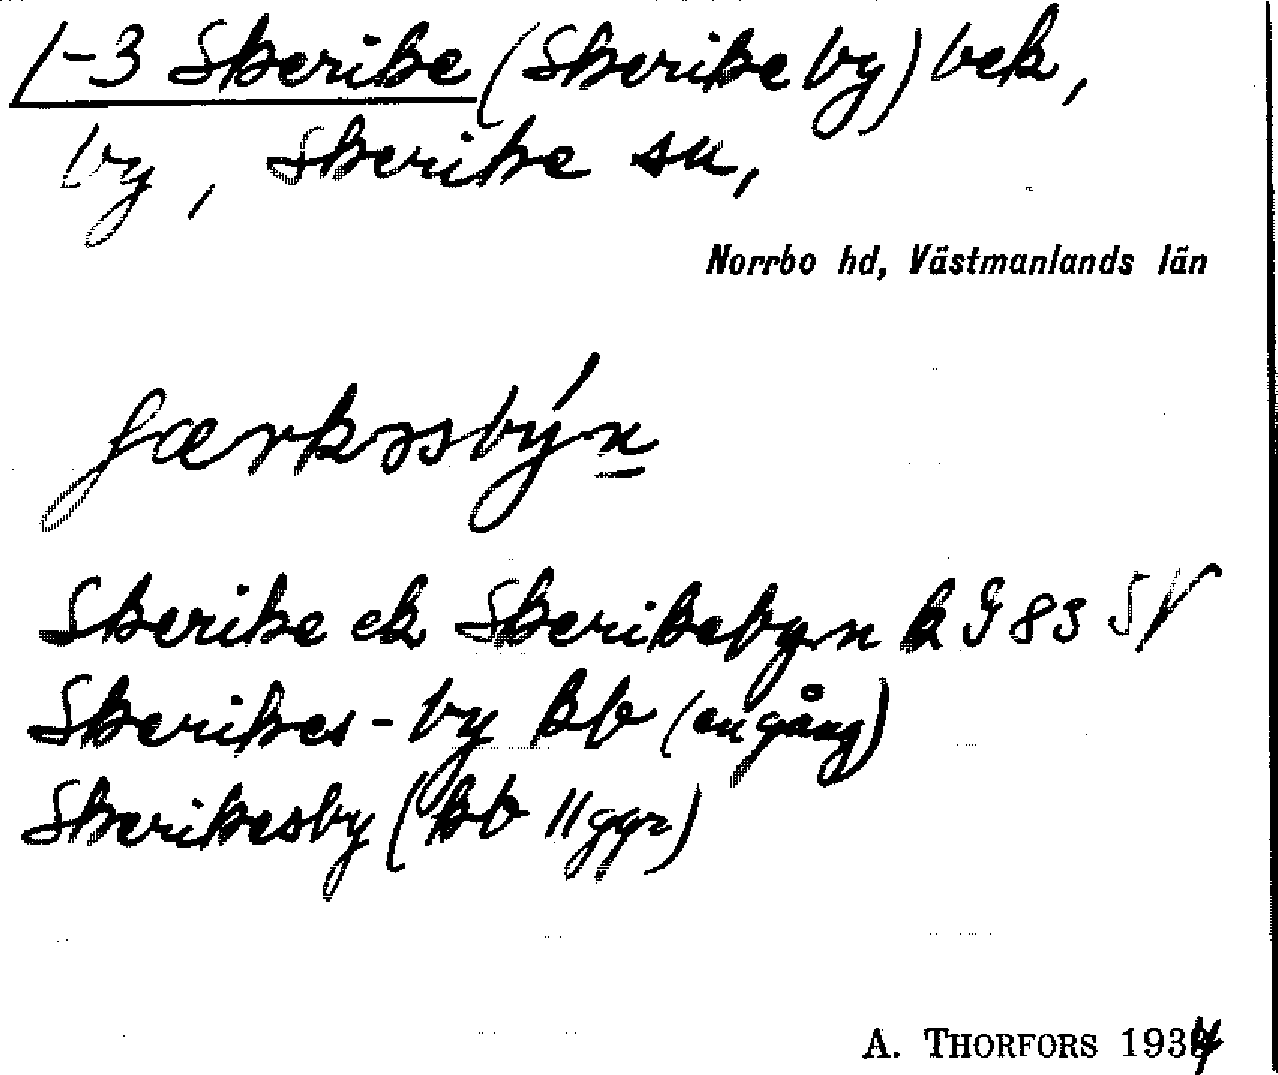 1-3 Skerike (Skerike by) bek,
by, Skerike sn,
Norrbo hd, Västmanlands län
Skerike ek Skerikebyn k J 83 SV
Skerikes-by kb (en gång)
Skerikesby (kb 11 ggr)
A. THORFORS 1934